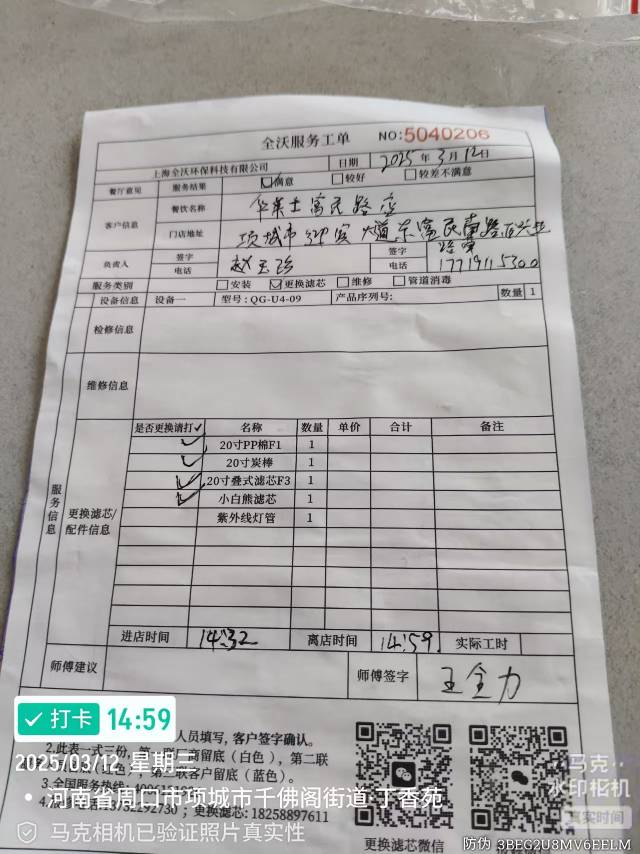 全沃服务工单 NO:5040206
上海全沃环保科技有限公司 日期 2025年3月12日
餐厅意见 服务结果 ☑满意 □较好 □较差不满意
客户信息 餐饮名称 华莱士富民路店
门店地址 项城市迎宾大道东富民南路
负责人 签字 赵玉 签字
电话 电话 17719115300
服务类别 □安装 ☑更换滤芯 □维修 □管道消毒
设备信息 设备一 型号:QG-U4-09 产品序列号: 数量 1
检修信息
维修信息
服务信息 更换滤芯/配件信息
是否更换请打✓ 名称 数量 单价 合计 备注
✓ 20寸PP棉F1 1
✓ 20寸炭棒 1
✓ 20寸叠式滤芯F3 1
✓ 小白熊滤芯 1
紫外线灯管 1
进店时间 14:32 离店时间 14:59 实际工时
师傅建议 师傅签字 王全力
人员填写,客户签字确认。
2.此表一式三份,第一联厂商留底(白色),第二联
第三联客户留底(蓝色)。
3.全国服务热线:
292730;更换滤芯:18258897611
更换滤芯微信
打卡 14:59
2025/03/12 星期三
河南省周口市项城市千佛阁街道·丁香苑
马克相机已验证照片真实性
马克
水印相机
真实时间
防伪 3BEG2U8MV6EELM